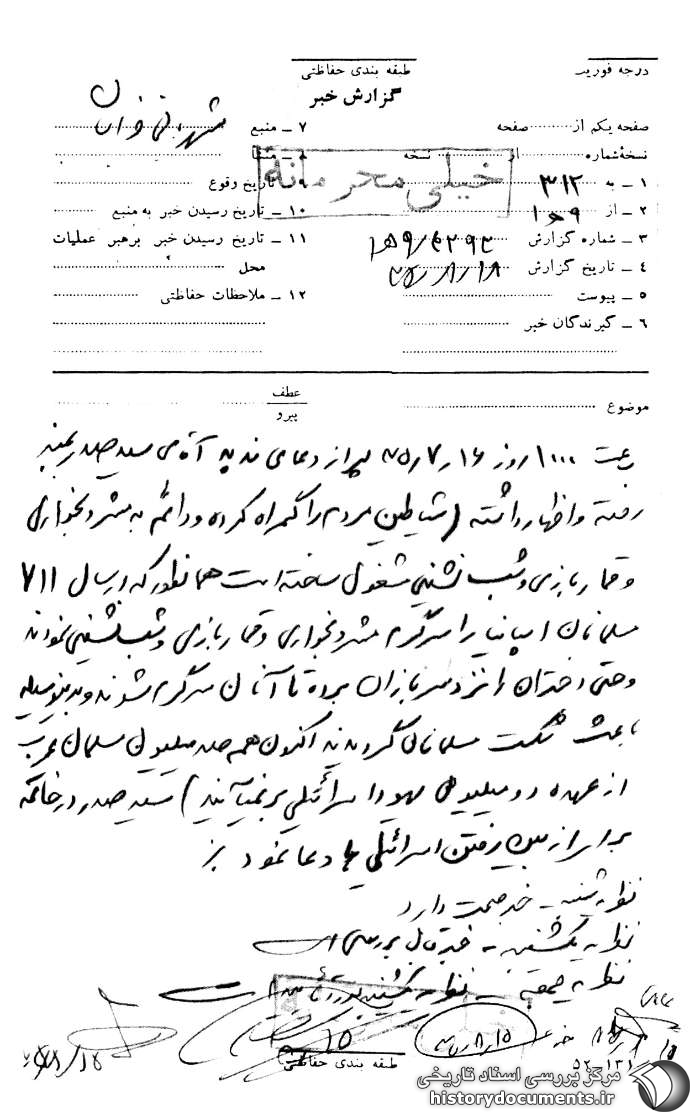 درجه فوریت
طبقه بندی حفاظتی
گزارش خبر
صفحه یکم از صفحه
نسخهٔ شماره از نسخه
۱ ـ به ۳۱۲
۲ ـ از ۹ ه ۱
۳ ـ شماره گزارش
۴ ـ تاریخ گزارش
۵ ـ پیوست
۶ ـ گیرندگان خبر
۷ ـ منبع
۸ ـ منشأ
۹ ـ تاریخ وقوع
۱۰ ـ تاریخ رسیدن خبر به منبع
۱۱ ـ تاریخ رسیدن خبر برهبر عملیات
محل
۱۲ ـ ملاحظات حفاظتی
خیلی محرمانه
موضوع
عطف
پیرو
ساعت ۱۰۰۰ روز ۱۶ ر ۷ ر ۲۵ پس از دعای ندبه آقای سید صدر به منبر
رفته و اظهار داشته (شیاطین مردم را گمراه کرده و دائم به مشروبخواری
و قمار بازی و شب نشینی مشغول ساخته است همانطور که در سال ۷۱۱
مسلمانان اسپانیا را سرگرم مشروبخواری و قمار بازی و شب نشینی نمودند
و حتی دختران را نزد سربازان برده تا آنان سرگرم شوند و بدینوسیله
باعث شکست مسلمانان گردیدند اکنون هم صد میلیون مسلمان عرب
از عهده دو میلیون یهود اسرائیلی بر نمیآیند) سید صدر در خاتمه
برای از بین رفتن اسرائیلی ها دعا نمود
نظریه شنبه ـ خبر صحت دارد
نظریه یکشنبه ـ خبر قابل بررسی است
نظریه جمعه ـ نظریه یکشنبه مورد تأیید است
طبقه بندی حفاظتی
۵۲ ـ ۱۳۱
مرکز بررسی اسناد تاریخی
historydocuments.ir